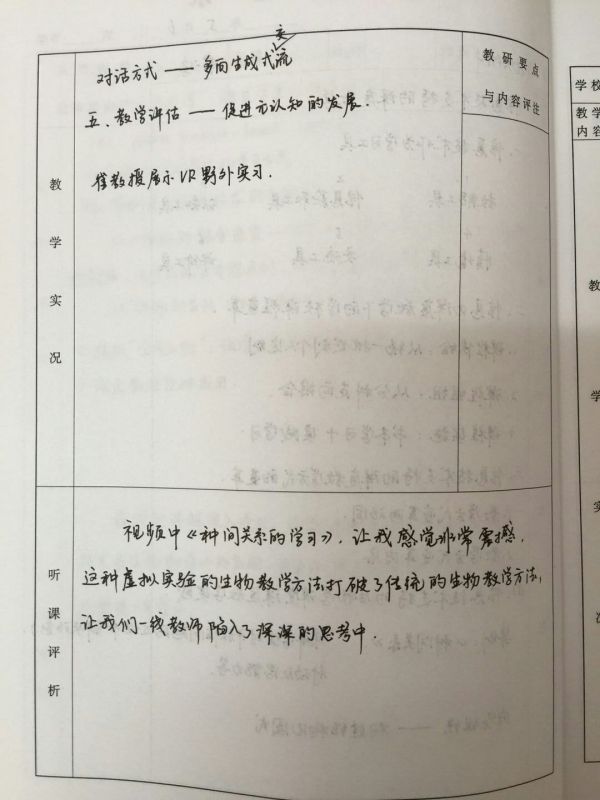 交
对话方式 —— 多向生成式流
五、教学评估 —— 促进元认知的发展.
崔教授展示VR野外实习.
教研要点
与内容评注
教学实况
视频中《种间关系的学习》,让我感觉非常震撼.
这种虚拟实验的生物教学方法打破了传统的生物教学方法,
让我们一线教师陷入了深深的思考中.
听课评析
学校
教学
内容
教
学
实
况